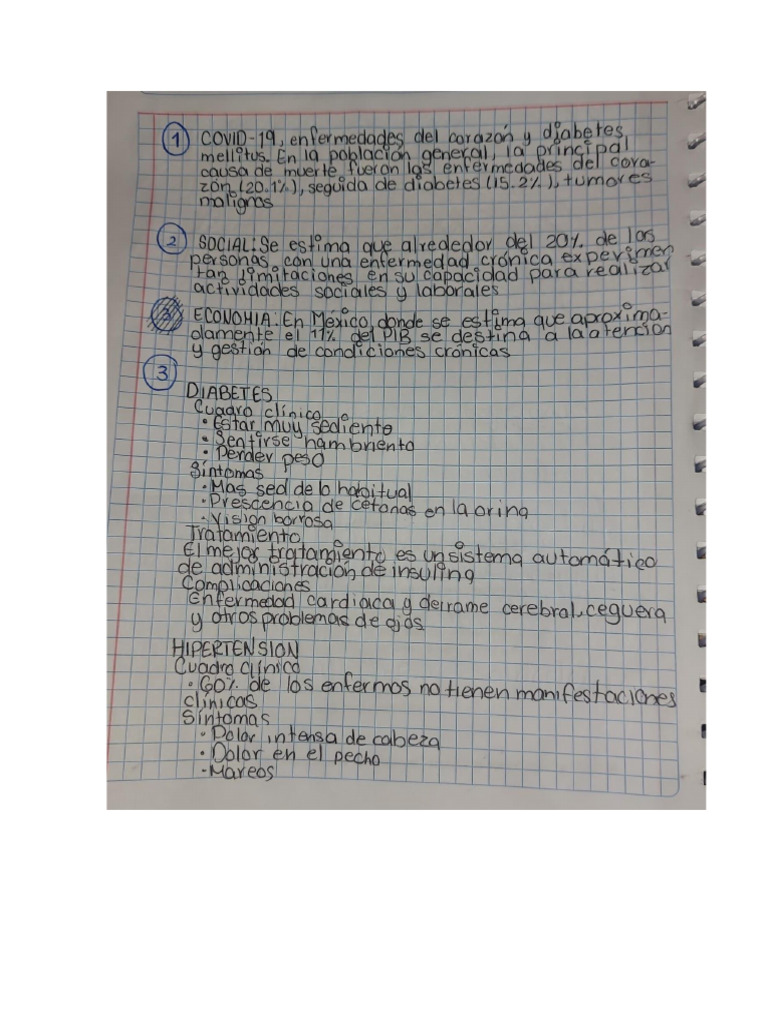 1 COVID-19, enfermedades del corazón y diabetes
mellitus. En la población general, la principal
causa de muerte fueron las enfermedades del cora-
zón (20.1%), seguida de diabetes (15.2%), tumores
malignos
2 SOCIAL: Se estima que alrededor del 20% de las
personas con una enfermedad crónica experimen
tan limitaciones en su capacidad para realizar
actividades sociales y laborales
3 ECONOMIA: En México donde se estima que aproxima-
damente el 11% del PIB se destina a la atención
y gestión de condiciones crónicas
3
DIABETES
Cuadro clínico
• Estar muy sediento
• Sentirse hambriento
• Perder peso
Síntomas
• Mas sed de lo habitual
• Prescencia de cetonas en la orina
• Vision borrosa
Tratamiento
El mejor tratamiento es un sistema automático
de administración de insulina
Complicaciones
Enfermedad cardiaca y derrame cerebral, ceguera
y otros problemas de ojos
HIPERTENSION
Cuadro clínico
• 60% de los enfermos no tienen manifestaciones
clínicas
Síntomas
• Dolor intensa de cabeza
• Dolor en el pecho
• Mareos